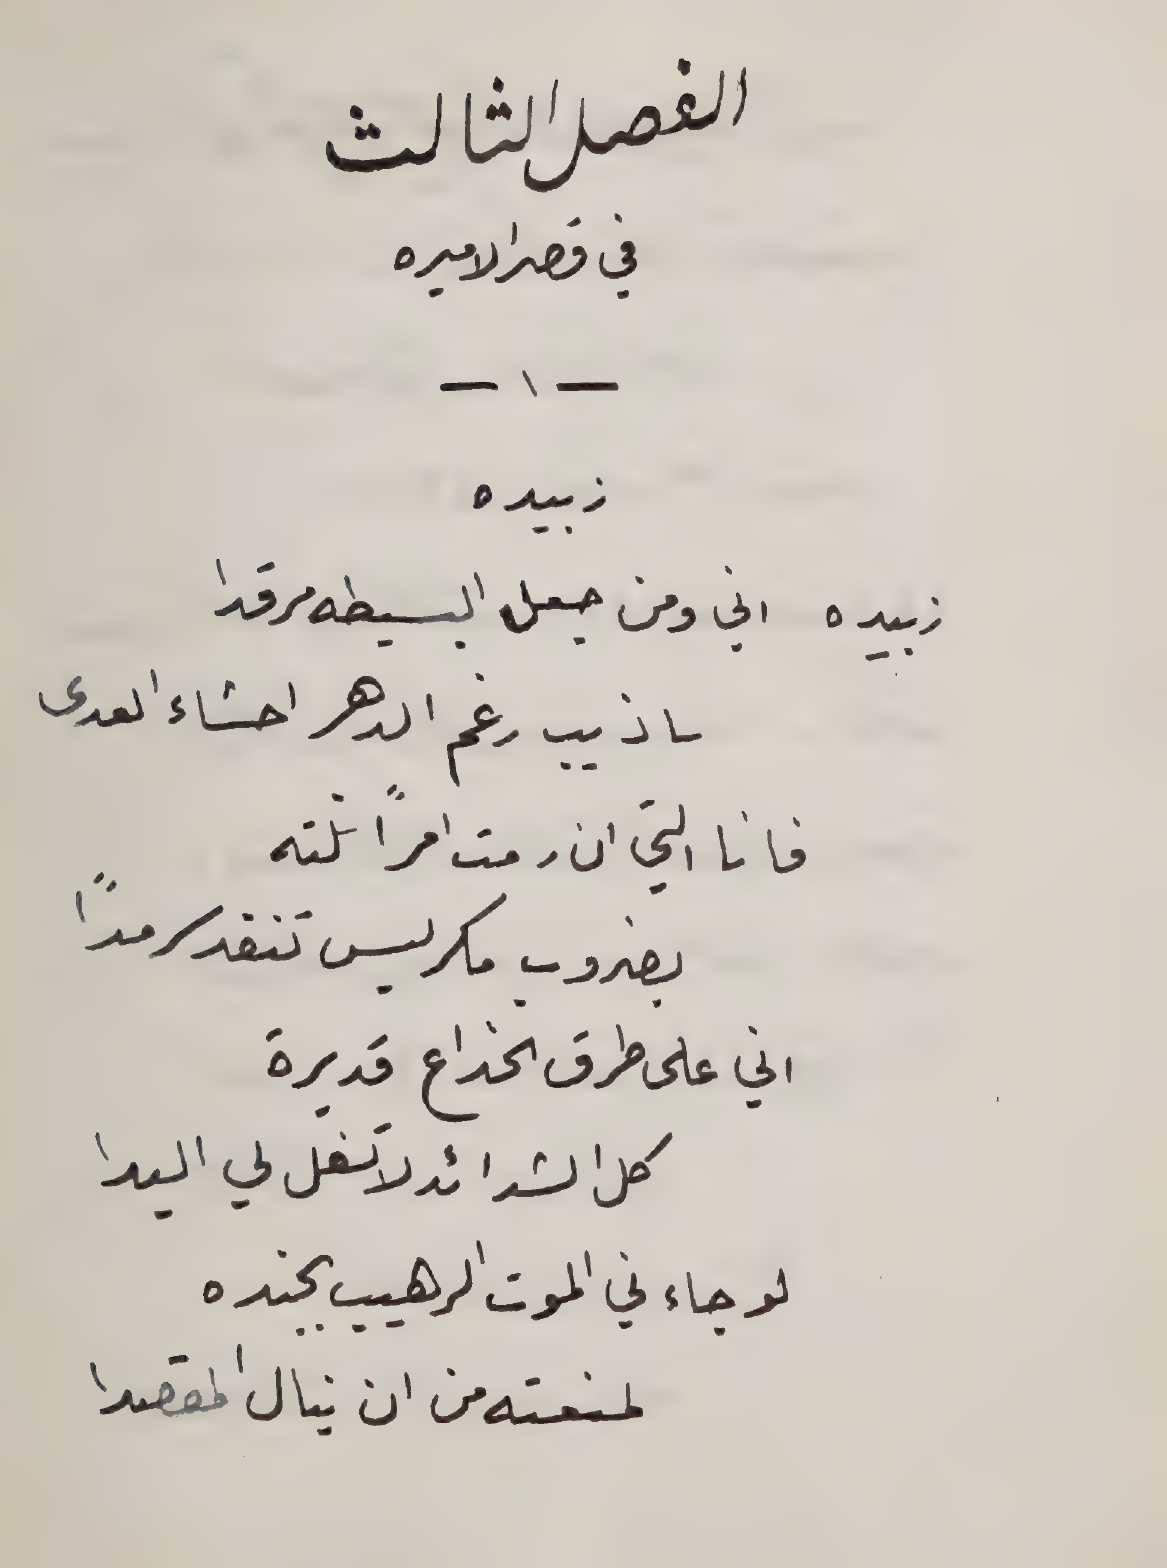 الفصل الثالث
في قصر الاميره
— ١ —
زبيده
زبيده اني ومن جعل البسيطه مرقدا
ساذيب رغم الدهر احشاء العدى
فانا التي ان رمت امرًا نلته
بضروب مكر ليس تنفد سرمدًا
اني على طرق الخداع قديرة
كل الشدائد لا تغل لي اليدا
لو جاء ني الموت الرهيب بجنده
لمنعته من ان ينال المقصدا